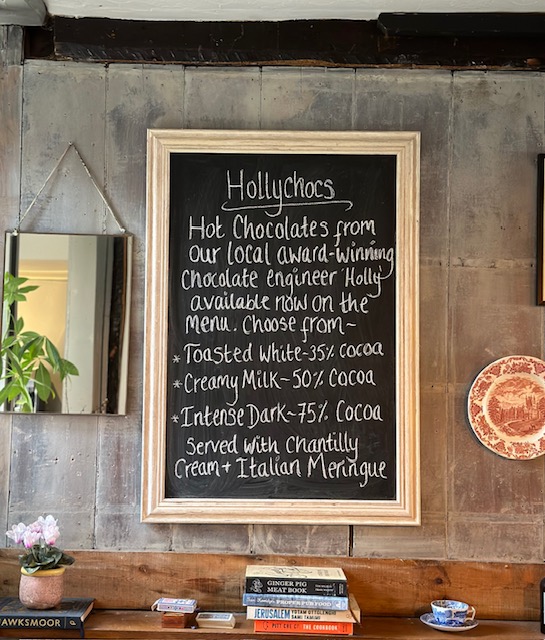 Hollychocs
Hot Chocolates from
Our local award-winning
Chocolate engineer Holly
available now on the
menu. Choose from~
* Toasted White~35% Cocoa
* Creamy Milk~50% Cocoa
* Intense Dark~75% Cocoa
Served with Chantilly
Cream + Italian Meringue
HAWKSMOOR
GINGER PIG
MEAT BOOK
PROPER PUB FOOD
JERUSALEM
YOTAM OTTOLENGHI
SAMI TAMIMI
PITT CUE CO. THE COOKBOOK